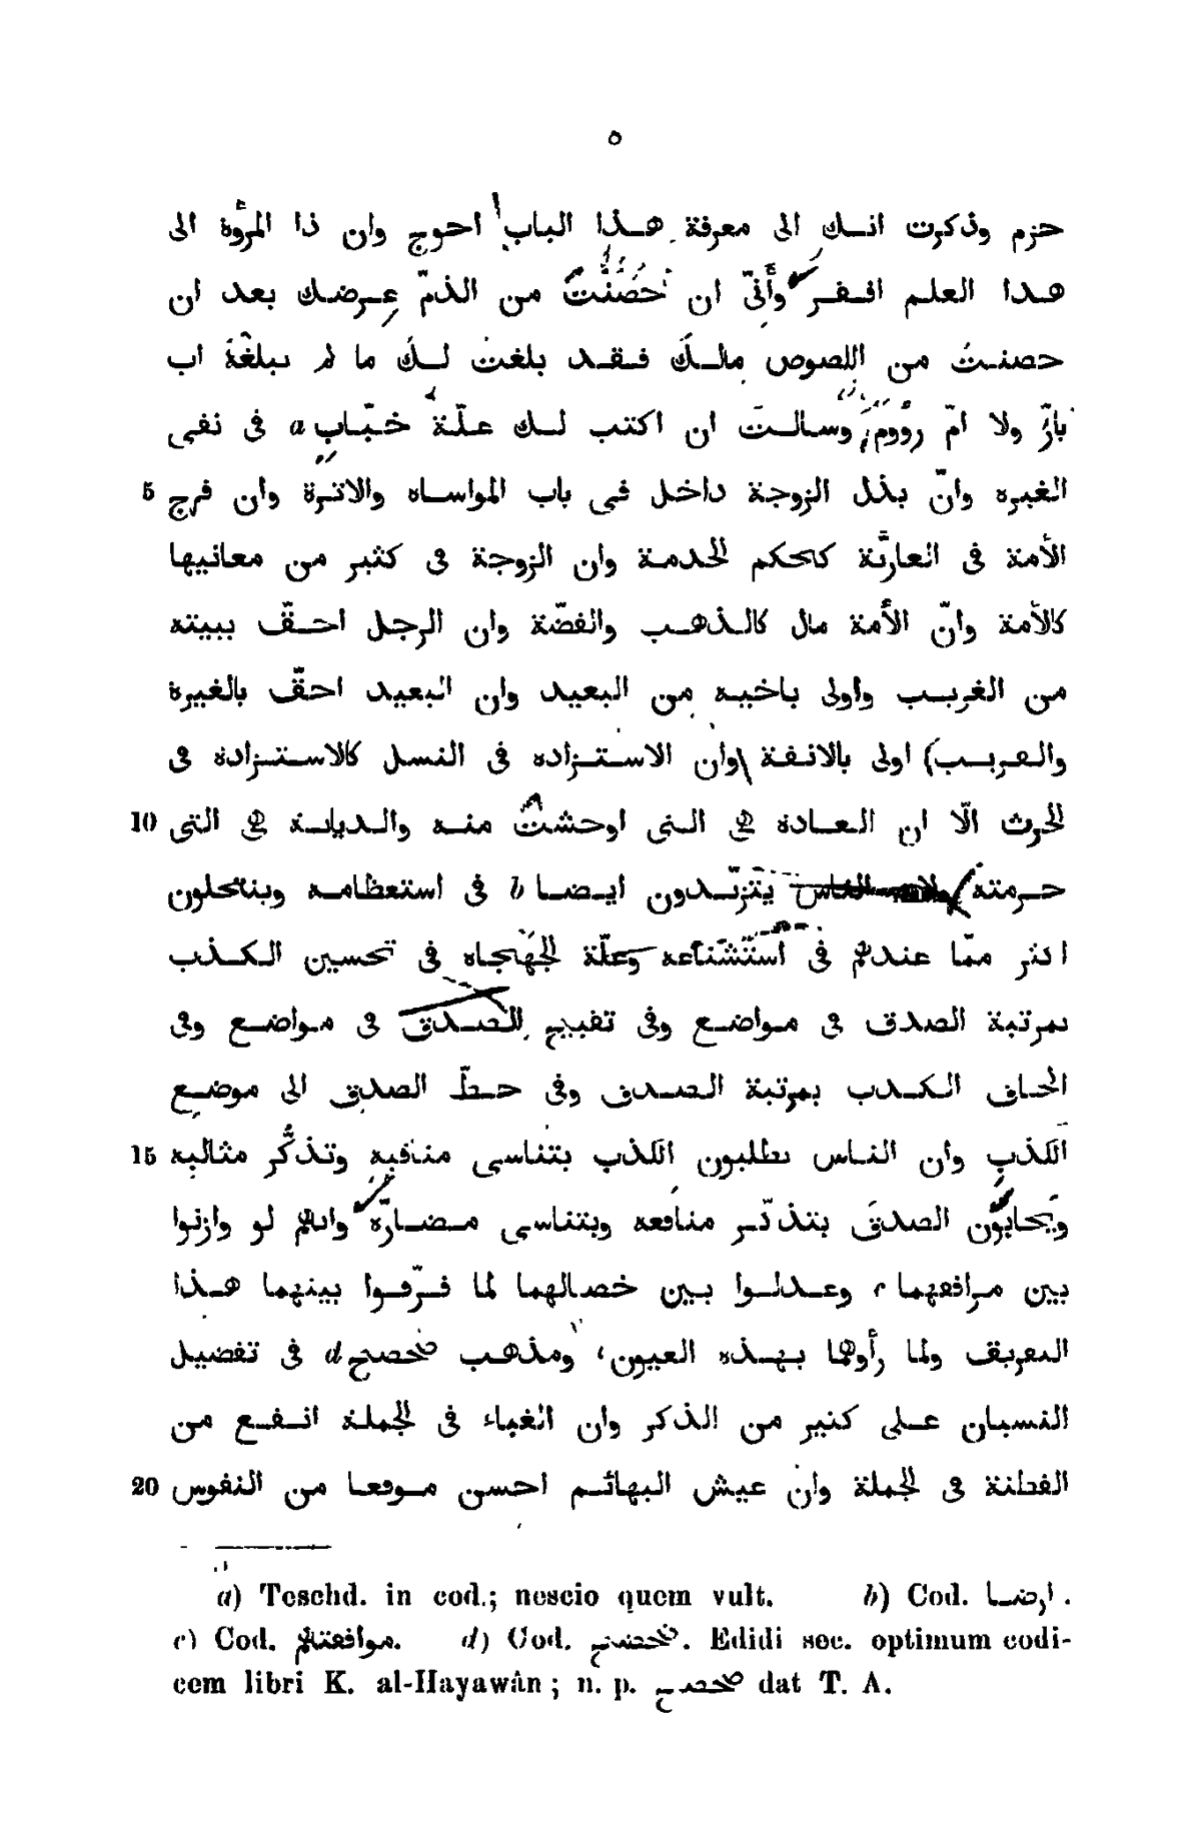 ٥
حزم وذكرت انك الى معرفة هذا الباب احوج وان ذا المروّة الى
هذا العلم افقر وأنّى ان حَصَّنْتَ من الذمّ عرضك بعد ان
حصنتَ من اللصوص مالَك فقد بلغتُ لك ما لم يبلغْه اب
بارّ ولا امّ رؤوم وسالتَ ان اكتب لك علّة خبّاب a فى نفى
5 الغيرة وانّ بذل الزوجة داخل فى باب المواساة والاثرة وان فرج
الأمة فى العاريّة كحكم الخدمة وان الزوجة فى كثير من معانيها
كالأمة وانّ الأمة مال كالذهب والفضّة وان الرجل احقّ ببيته
من الغريب واولى باخيه من البعيد وان البعيد احقّ بالغيرة
والقريب) اولى بالانفة وان الاستزادة فى النسل كالاستزادة فى
10 الحرث الّا ان العادة هى التى اوحشت منه والديانة هى التى
حرمته ولان الناس يتزيّدون ايضا b فى استعظامه وينتحلون
اكثر ممّا عندهم فى استشناعه وعلّة الجهجاه فى تحسين الكذب
بمرتبة الصدق فى مواضع وفى تقبيح الصدق فى مواضع وفى
الحاق الكذب بمرتبة الصدق وفى حطّ الصدق الى موضع
15 الكذب وان الناس يظلمون الكذب بتناسى مناقبه وتذكُّر مثالبه
ويحابُون الصدقَ بتذكّر منافعه وبتناسى مضارّه وانهم لو وازنوا
بين مرافقهما c وعدلوا بين خصالهما لما فرّقوا بينهما هذا
التفريق ولما رأوهما بهذه العيون، ومذهب صحصح d فى تفضيل
النسيان على كثير من الذكر وان الغباء فى الجملة انفع من
20 الفطنة فى الجملة وان عيش البهائم احسن موقعا من النفوس
a) Teschd. in cod.; nescio quem vult. b) Cod. ارضا.
c) Cod. موافقتهم. d) Cod. ضحضح. Edidi sec. optimum codi-
cem libri K. al-Hayawân; n. p. صحصح dat T. A.